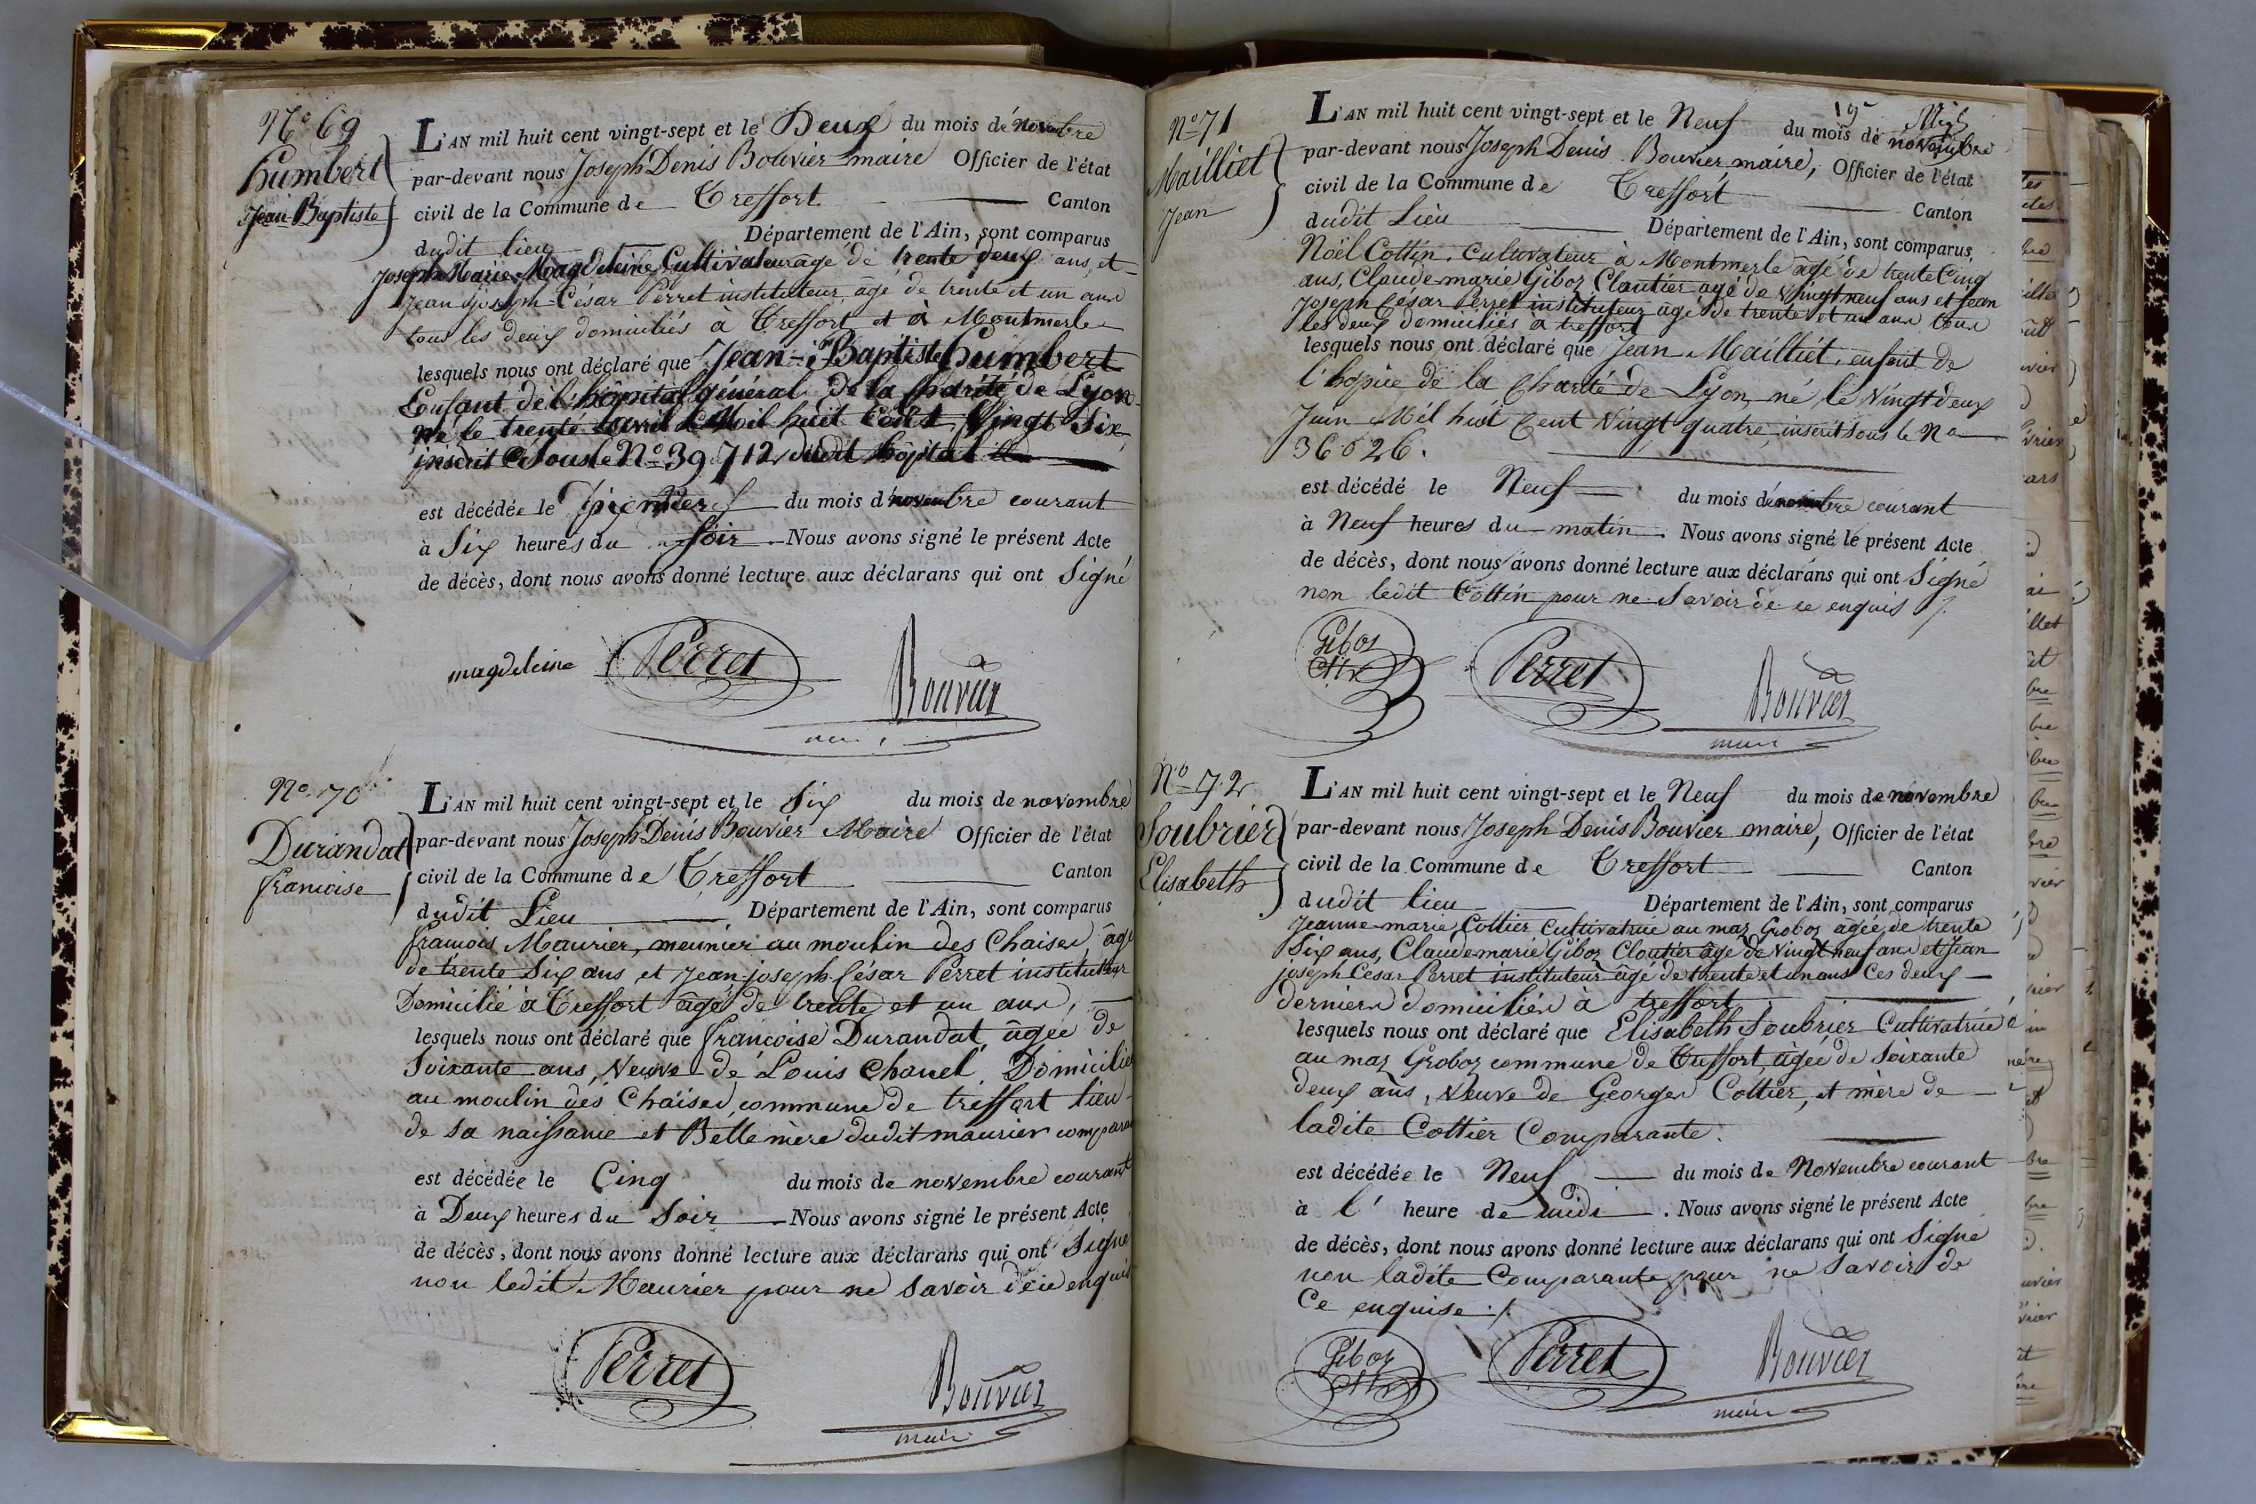 N.o 69
Humbert
Jean-Baptiste
L'AN mil huit cent vingt-sept et le Deux du mois de novembre
par-devant nous Joseph Denis Bouvier maire Officier de l'état
civil de la Commune de Treffort Canton
dudit lieu Département de l'Ain, sont comparus
Joseph Marie Magdeleine, Cultivateur âgé de trente deux ans, et
Jean Joseph-César Perret instituteur, âgé de trente et un ans
tous les deux domiciliés à Treffort et à Montmerle
lesquels nous ont déclaré que Jean-Baptiste Humbert
Enfant de l'hôpital général de la Charité de Lyon
né le trente avril Mil huit Cent Vingt Six
inscrit Sous le No 39712 dudit hôpital
est décédée le premier du mois de novembre courant
à Six heures du Soir Nous avons signé le présent Acte
de décès, dont nous avons donné lecture aux déclarans qui ont Signé
magdeleine Perret Bouvier
N.o 70
Durandat
francoise
L'AN mil huit cent vingt-sept et le Six du mois de novembre
par-devant nous Joseph Denis Bouvier Maire Officier de l'état
civil de la Commune de Treffort Canton
dudit Lieu Département de l'Ain, sont comparus
françois Maurier, meunier au moulin des Chaises, âgé
de trente Six ans et Jean-joseph-César Perret instituteur
Domicilié à Treffort âgé de trente et un ans,
lesquels nous ont déclaré que francoise Durandat, âgée de
Soixante ans, Veuve de Louis Chanel, Domiciliée
au moulin des Chaises, commune de treffort lieu
de sa naissance et Belle mère dudit maurier comparant
est décédée le Cinq du mois de novembre courant
à Deux heures du Soir Nous avons signé le présent Acte
de décès, dont nous avons donné lecture aux déclarans qui ont Signé
non ledit Maurier pour ne savoir de ce enquis
Perret Bouvier
maire
N.o 71
Mailliet
Jean
L'AN mil huit cent vingt-sept et le Neuf du mois de novembre
par-devant nous Joseph Denis Bouvier maire, Officier de l'état
civil de la Commune de Treffort Canton
dudit Lieu Département de l'Ain, sont comparus
Noël Cottin, Cultivateur à Montmerle âgé de trente Cinq
ans, Claude marie Giboz Cloutier agé de Vingt neuf ans et Jean
Joseph César Perret instituteur âgé de trente et un ans tous
les deux domiciliés a treffort
lesquels nous ont déclaré que Jean Mailliet, enfant de
l'hospice de la Charité de Lyon, né le Vingt deux
Juin Mil huit Cent Vingt quatre, inscrit sous le No
36626.
est décédé le Neuf du mois de novembre courant
à Neuf heures du matin. Nous avons signé le présent Acte
de décès, dont nous avons donné lecture aux déclarans qui ont Signé
non ledit Cottin pour ne Savoir de ce enquis
Giboz Perret Bouvier
maire
N.o 72
Soubrier
Elisabeth
L'AN mil huit cent vingt-sept et le Neuf du mois de novembre
par-devant nous Joseph Denis Bouvier maire, Officier de l'état
civil de la Commune de Treffort Canton
dudit lieu Département de l'Ain, sont comparus
Jeanne marie Cottier Cultivatrice au maz Groboz âgée de trente
Six ans, Claude marie Giboz Cloutier âgé de Vingt neuf ans et Jean
joseph César Perret instituteur âgé de trente et un ans Ces deux
derniers domiciliés à treffort
lesquels nous ont déclaré que Elisabeth Soubrier Cultivatrice
au maz Groboz commune de Treffort, âgée de Soixante
deux ans, Veuve de George Cottier, et mère de
ladite Cottier Comparante.
est décédée le Neuf du mois de Novembre courant
à l' heure de midi. Nous avons signé le présent Acte
de décès, dont nous avons donné lecture aux déclarans qui ont Signé
non ladite Comparante pour ne Savoir de
Ce enquise
Giboz Perret Bouvier
maire